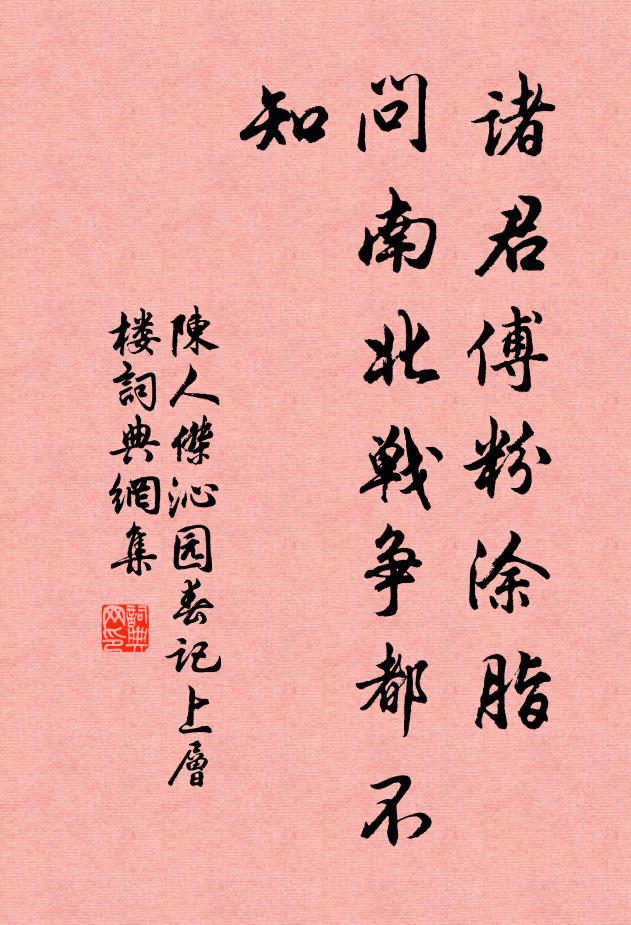 诸君傅粉涂脂
问南北戦争都不
知
陳人傑沁园春记上層
楼詞典網集
詞典
网印